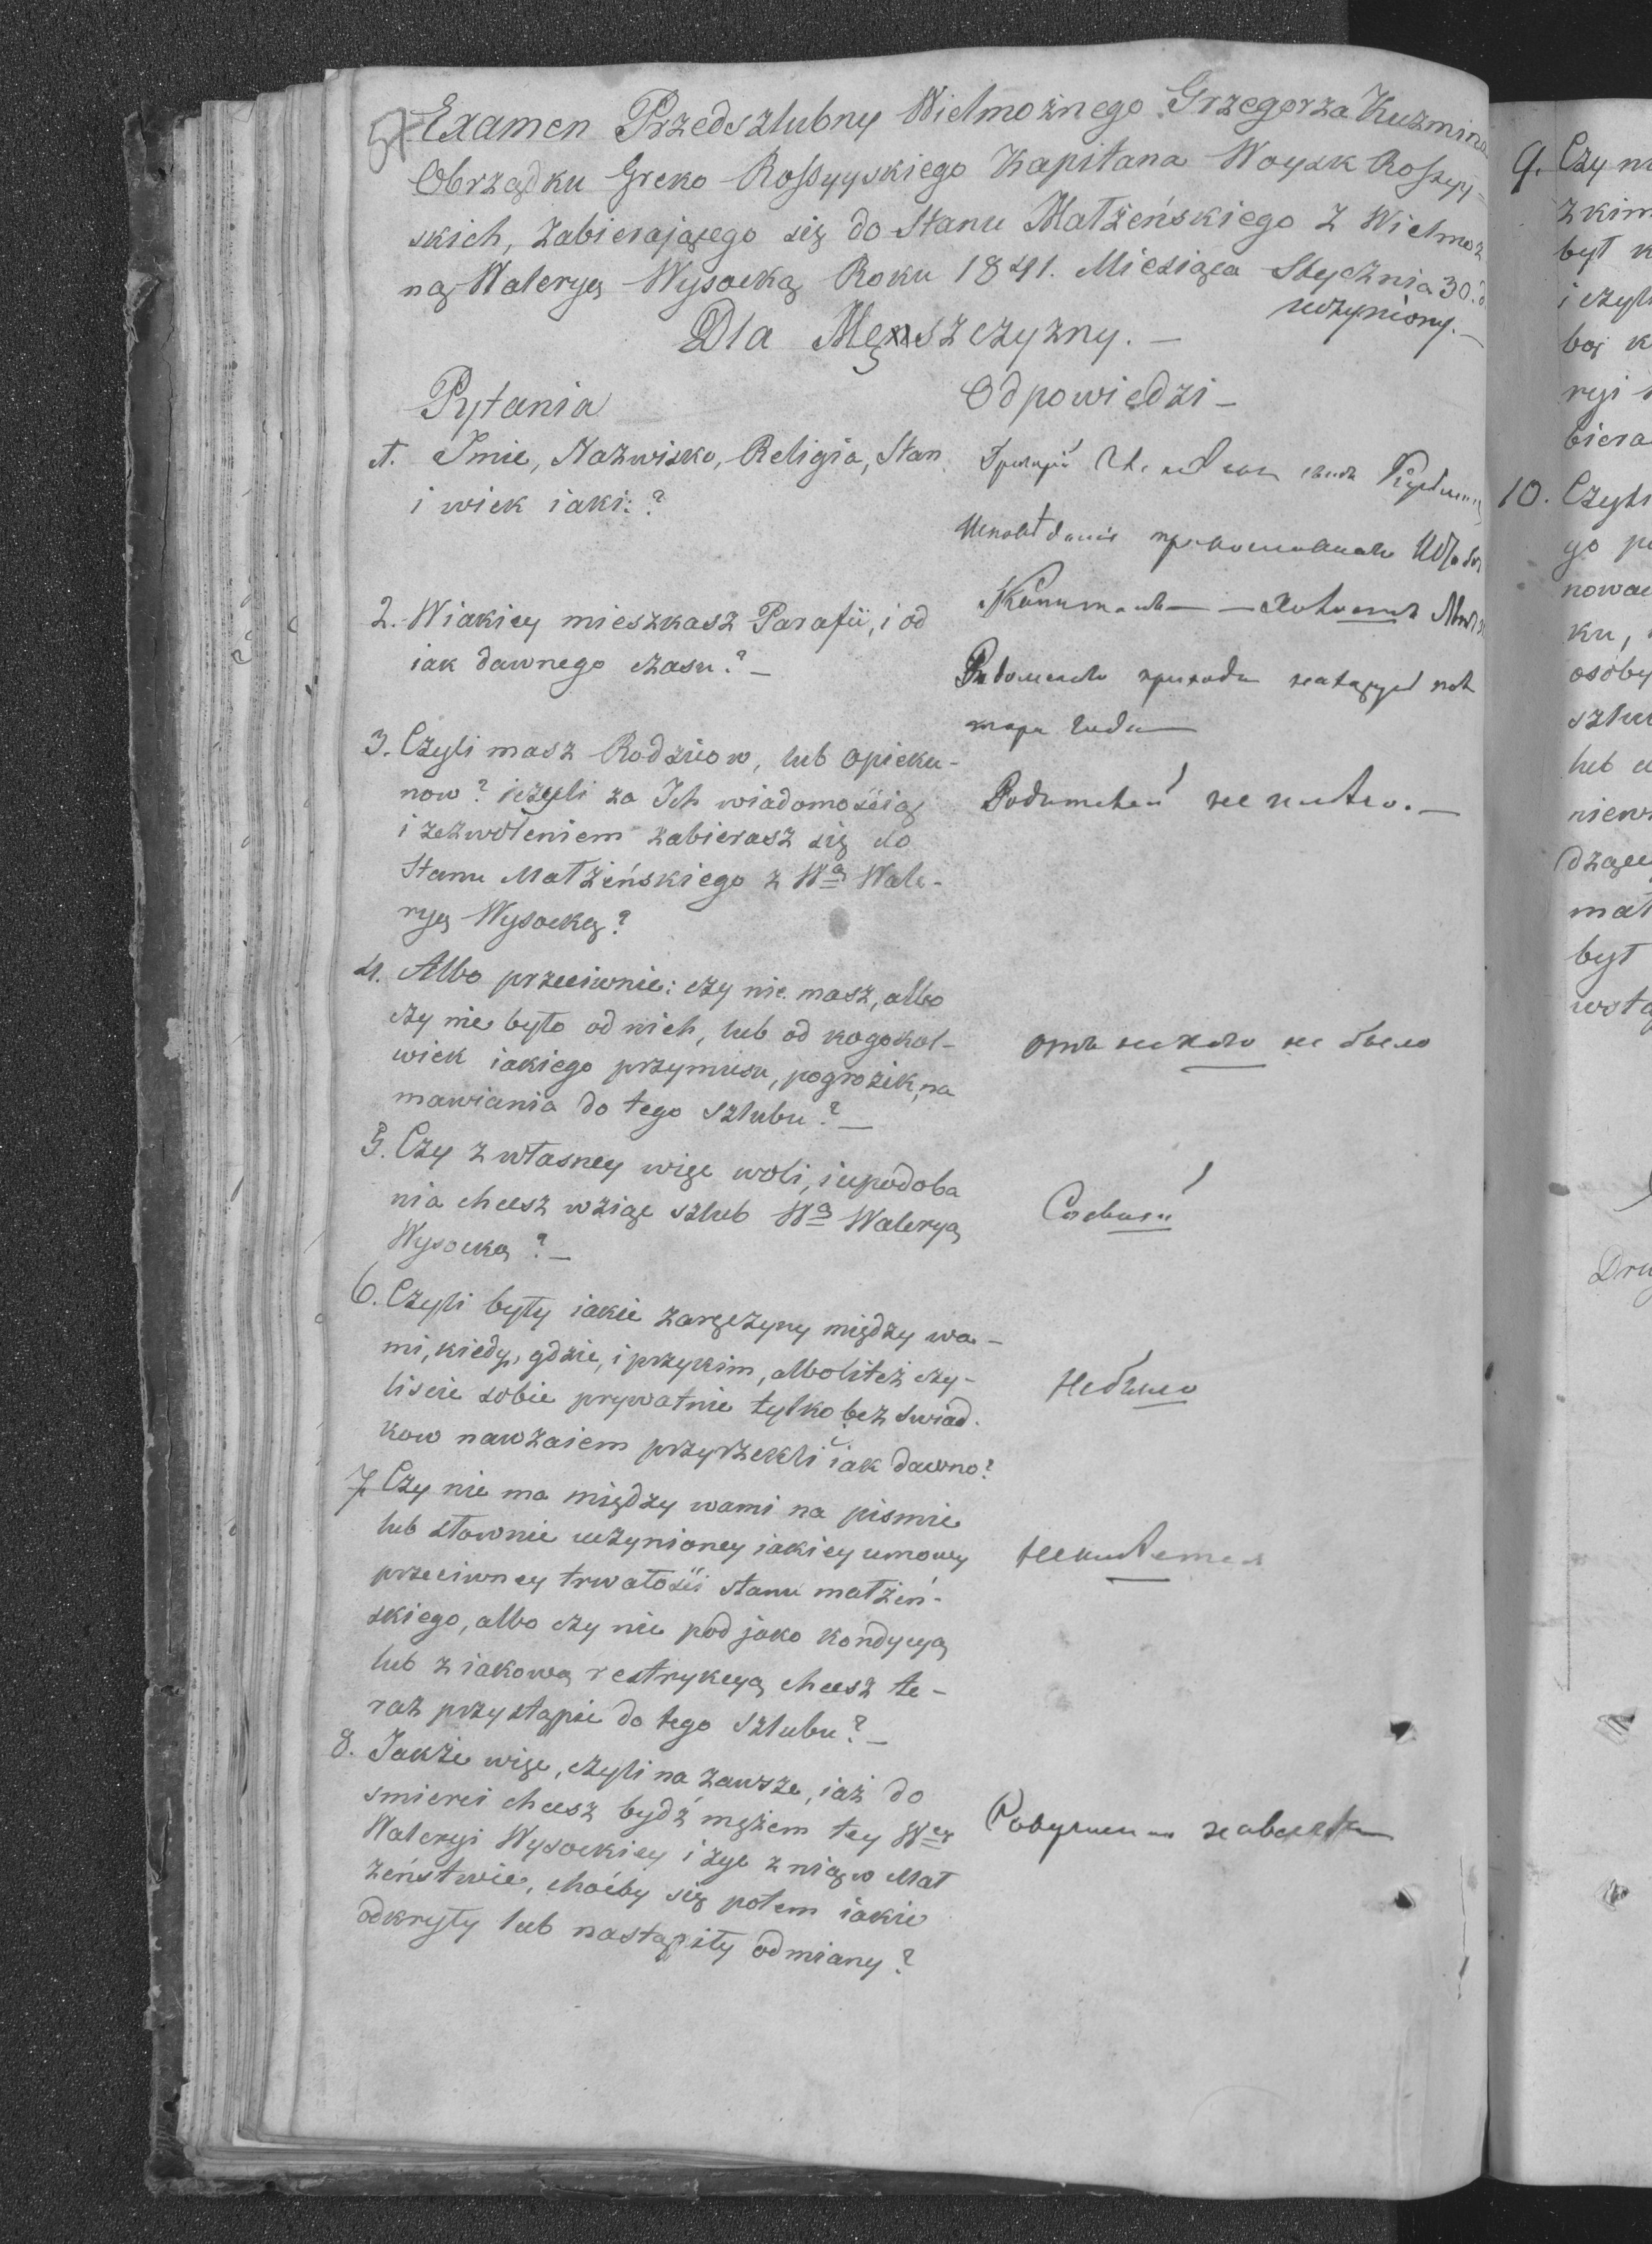 Examen Przedszlubny Wielmożnego Grzegorza Kuzmina
Obrządku Greko Rossyyskiego Kapitana Woysk Rossyy-
skich, zabierającego się do Stanu Małżeńskiego z Wielmoż
ną Waleryą Wysocką Roku 1841. Miesiąca Stycznia 30. d.
uczyniony. —
Dla Męszczyzny. —
Pytania
Odpowiedzi —
1. Jmie, Nazwisko, Religia, Stan
i wiek iaki: ?
Григорій
Исповѣданія православнаго
Капитанъ —
2. Wiakiey mieszkasz Parafii, i od
iak dawnego czasu? —
прихода
года —
3. Czyli masz Rodzicow, lub opieku-
now? iczyli za Jch wiadomością
i zezwoleniem zabierasz się do
Stanu Małżeńskiego z Wą Wale-
ryą Wysocką?
Родителей не имѣю. —
4. Albo przeciwnie: czy nie masz, albo
czy nie było od nich, lub od kogokol-
wiek iakiego przymusu, pogrożek, na
mawiania do tego szlubu? —
не было
5. Czy z własney więc woli, i upodoba
nia chcesz wziąć szlub Wą Waleryą
Wysocką? —
6. Czyli były iakie zaręczyny między wa-
mi, kiedy, gdzie, i przykim, albolitéż czy-
liscie sobie prywatnie tylko bez swiad-
kow nawzaiem przyrzekli i iak dawno?
Не было
7. Czy nie ma między wami na pismie
lub słownie uczynioney iakiey umowy
przeciwney trwałości stanu małżeń-
skiego, albo czy nie pod jako kondycyą
lub z iakową restrykcyą chcesz te-
raz przystąpić do tego szlubu? —
Не имѣется
8. Jakże więc, czyli na zawsze, iaż do
smierci chcesz bydź mężem tey Wey
Waleryi Wysockiey i żyć z nią w Mał
żeństwie, choćby się potem iakie
odkryły lub nastąpiły odmiany?
9. Czy ni
z kim
był k
i czyli
bą k
ryi
biera
10. Czyli
go
nowa
ku,
osoby
szlu
lub
niew
dząc
mał
był
wstą
Dru